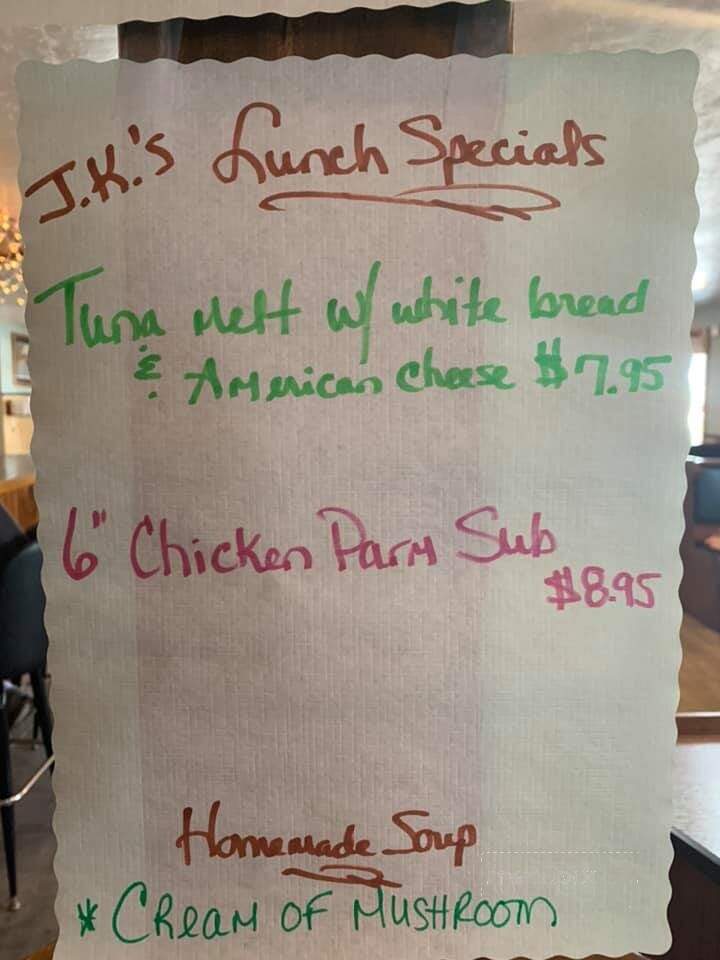 J.K.'s Lunch Specials
Tuna Melt w/ white bread
& American cheese $7.95
6" Chicken Parm Sub
$8.95
Homemade Soup
* CReaM OF MUSHROOM